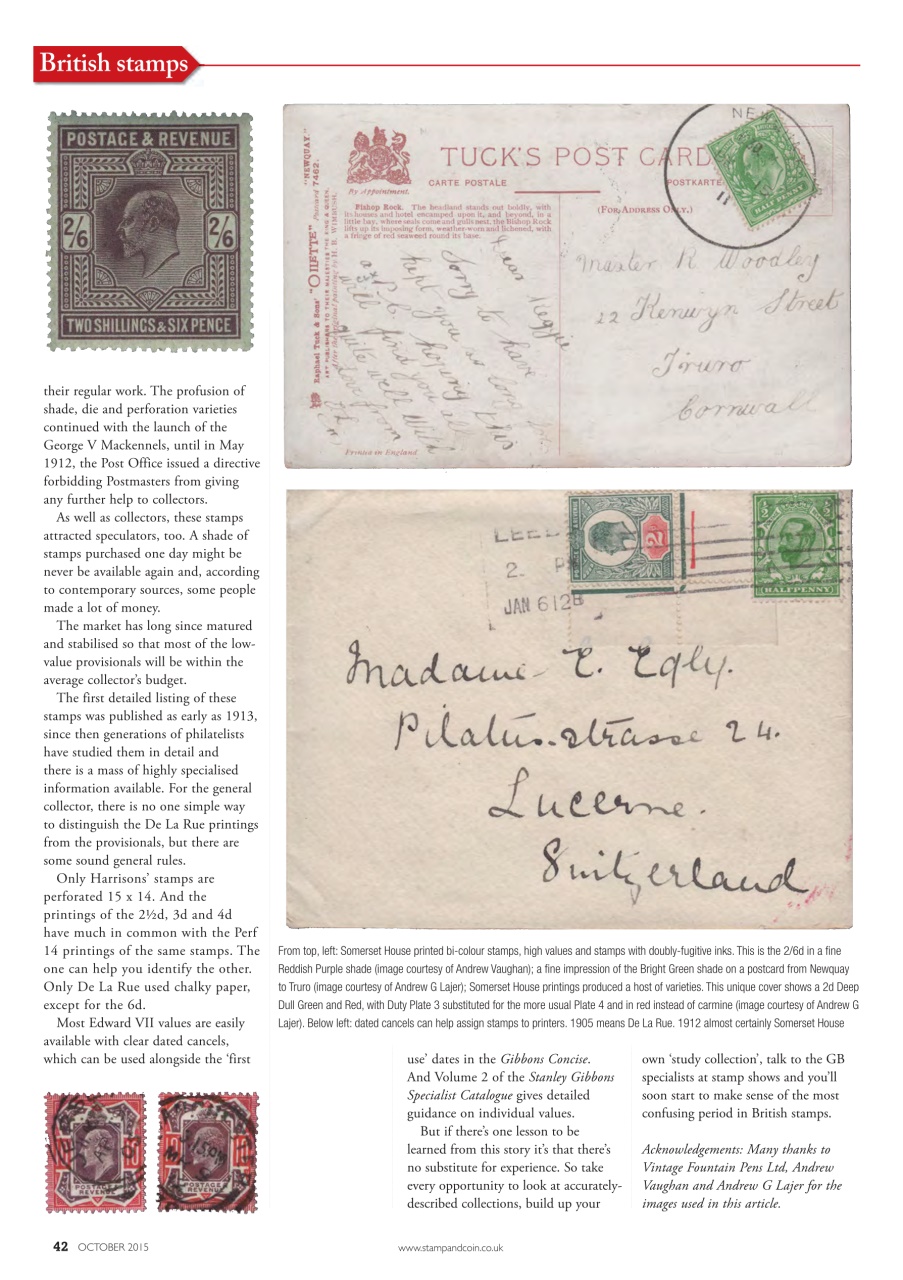 British stamps
POSTAGE & REVENUE
2/6
2/6
TWO SHILLINGS & SIX PENCE
their regular work. The profusion of
shade, die and perforation varieties
continued with the launch of the
George V Mackennels, until in May
1912, the Post Office issued a directive
forbidding Postmasters from giving
any further help to collectors.
As well as collectors, these stamps
attracted speculators, too. A shade of
stamps purchased one day might be
never be available again and, according
to contemporary sources, some people
made a lot of money.
The market has long since matured
and stabilised so that most of the low-
value provisionals will be within the
average collector's budget.
The first detailed listing of these
stamps was published as early as 1913,
since then generations of philatelists
have studied them in detail and
there is a mass of highly specialised
information available. For the general
collector, there is no one simple way
to distinguish the De La Rue printings
from the provisionals, but there are
some sound general rules.
Only Harrisons' stamps are
perforated 15 x 14. And the
printings of the 2½d, 3d and 4d
have much in common with the Perf
14 printings of the same stamps. The
one can help you identify the other.
Only De La Rue used chalky paper,
except for the 6d.
Most Edward VII values are easily
available with clear dated cancels,
which can be used alongside the 'first
"NEWQUAY."
Postcard 7462.
Raphael Tuck & Sons' "OILETTE"
ART PUBLISHERS TO THEIR MAJESTIES THE KING & QUEEN.
By Appointment.
TUCK'S POST CARD
CARTE POSTALE
POSTKARTE
Bishop Rock. The headland stands out boldly, with
its houses and hotel encamped upon it, and beyond, in a
little bay, where seals come and gulls nest, the Bishop Rock
lifts up its imposing form, weather-worn and lichened, with
a fringe of red seaweed round its base.
(FOR ADDRESS ONLY.)
NE
11
HALF PENNY
Dear Reggie
Sorry to have
kept you so long
hoping this
will find you all
quite well with
love from
Printed in England
Master R Woodley
22 Kenwyn Street
Truro
Cornwall
LEED
2. P
JAN 6 12
2
HALFPENNY
Madame E. Egly.
Pilatus-strasse 24.
Lucerne.
Switzerland
From top, left: Somerset House printed bi-colour stamps, high values and stamps with doubly-fugitive inks. This is the 2/6d in a fine
Reddish Purple shade (image courtesy of Andrew Vaughan); a fine impression of the Bright Green shade on a postcard from Newquay
to Truro (image courtesy of Andrew G Lajer); Somerset House printings produced a host of varieties. This unique cover shows a 2d Deep
Dull Green and Red, with Duty Plate 3 substituted for the more usual Plate 4 and in red instead of carmine (image courtesy of Andrew G
Lajer). Below left: dated cancels can help assign stamps to printers. 1905 means De La Rue. 1912 almost certainly Somerset House
POSTAGE &
REVENUE
POSTAGE &
REVENUE
use' dates in the Gibbons Concise.
And Volume 2 of the Stanley Gibbons
Specialist Catalogue gives detailed
guidance on individual values.
But if there's one lesson to be
learned from this story it's that there's
no substitute for experience. So take
every opportunity to look at accurately-
described collections, build up your
own 'study collection', talk to the GB
specialists at stamp shows and you'll
soon start to make sense of the most
confusing period in British stamps.
Acknowledgements: Many thanks to
Vintage Fountain Pens Ltd, Andrew
Vaughan and Andrew G Lajer for the
images used in this article.
42 OCTOBER 2015
www.stampandcoin.co.uk